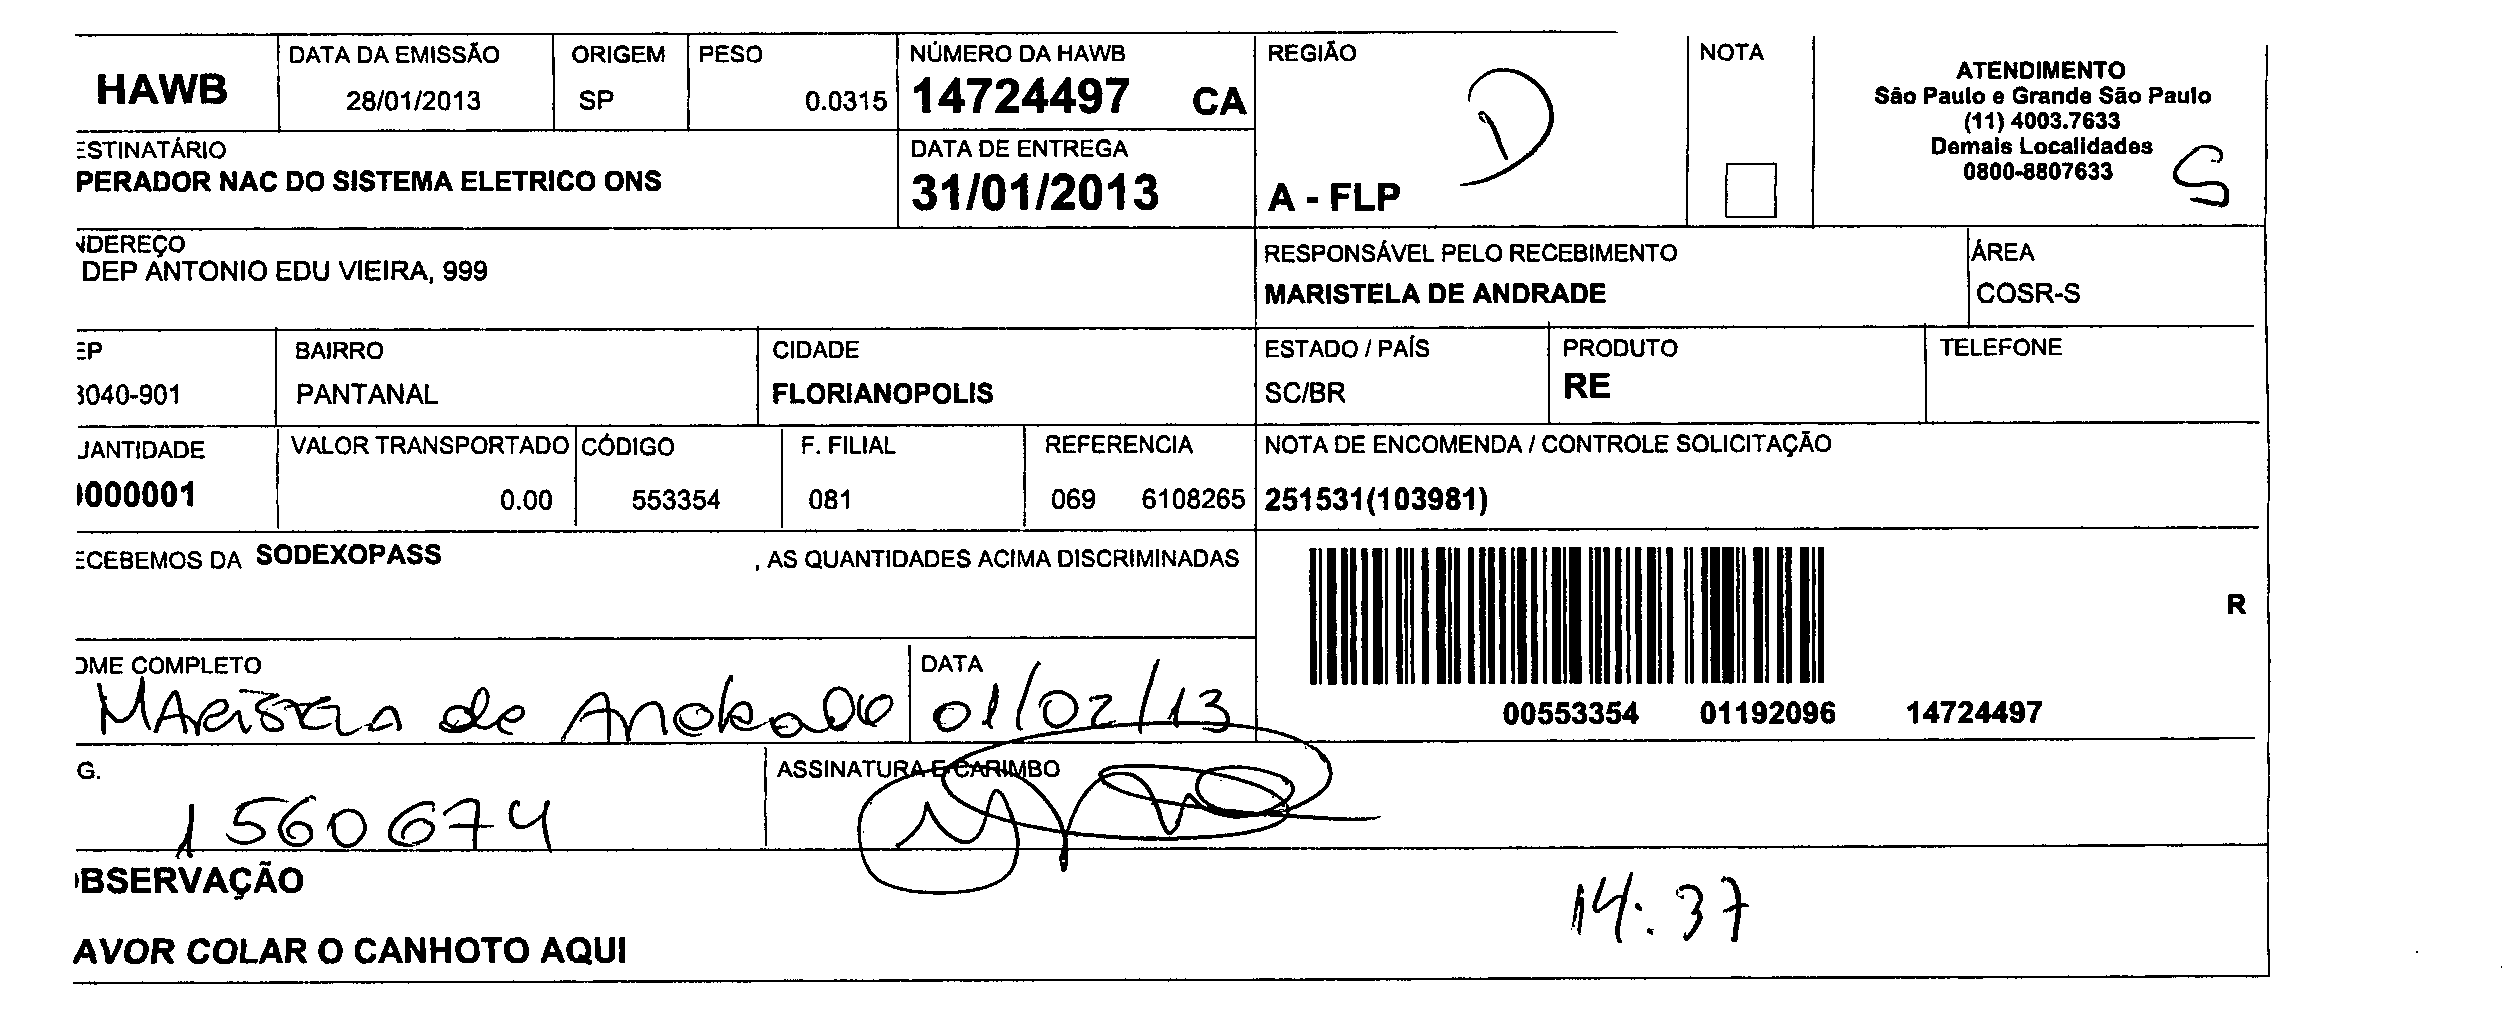 HAWB
DATA DA EMISSÃO
28/01/2013
ORIGEM
SP
PESO
0.0315
NÚMERO DA HAWB
14724497 CA
REGIÃO
D
A - FLP
NOTA
ATENDIMENTO
São Paulo e Grande São Paulo
(11) 4003.7633
Demais Localidades
0800-8807633
S
ESTINATÁRIO
PERADOR NAC DO SISTEMA ELETRICO ONS
DATA DE ENTREGA
31/01/2013
NDEREÇO
DEP ANTONIO EDU VIEIRA, 999
RESPONSÁVEL PELO RECEBIMENTO
MARISTELA DE ANDRADE
ÁREA
COSR-S
EP
3040-901
BAIRRO
PANTANAL
CIDADE
FLORIANOPOLIS
ESTADO / PAÍS
SC/BR
PRODUTO
RE
TELEFONE
UANTIDADE
0000001
VALOR TRANSPORTADO
0.00
CÓDIGO
553354
F. FILIAL
081
REFERENCIA
069 6108265
NOTA DE ENCOMENDA / CONTROLE SOLICITAÇÃO
251531(103981)
ECEBEMOS DA SODEXOPASS , AS QUANTIDADES ACIMA DISCRIMINADAS
R
00553354 01192096 14724497
OME COMPLETO
Maristela de Andrade
DATA
01/02/13
G.
1560674
ASSINATURA E CARIMBO
BSERVAÇÃO
14:37
AVOR COLAR O CANHOTO AQUI